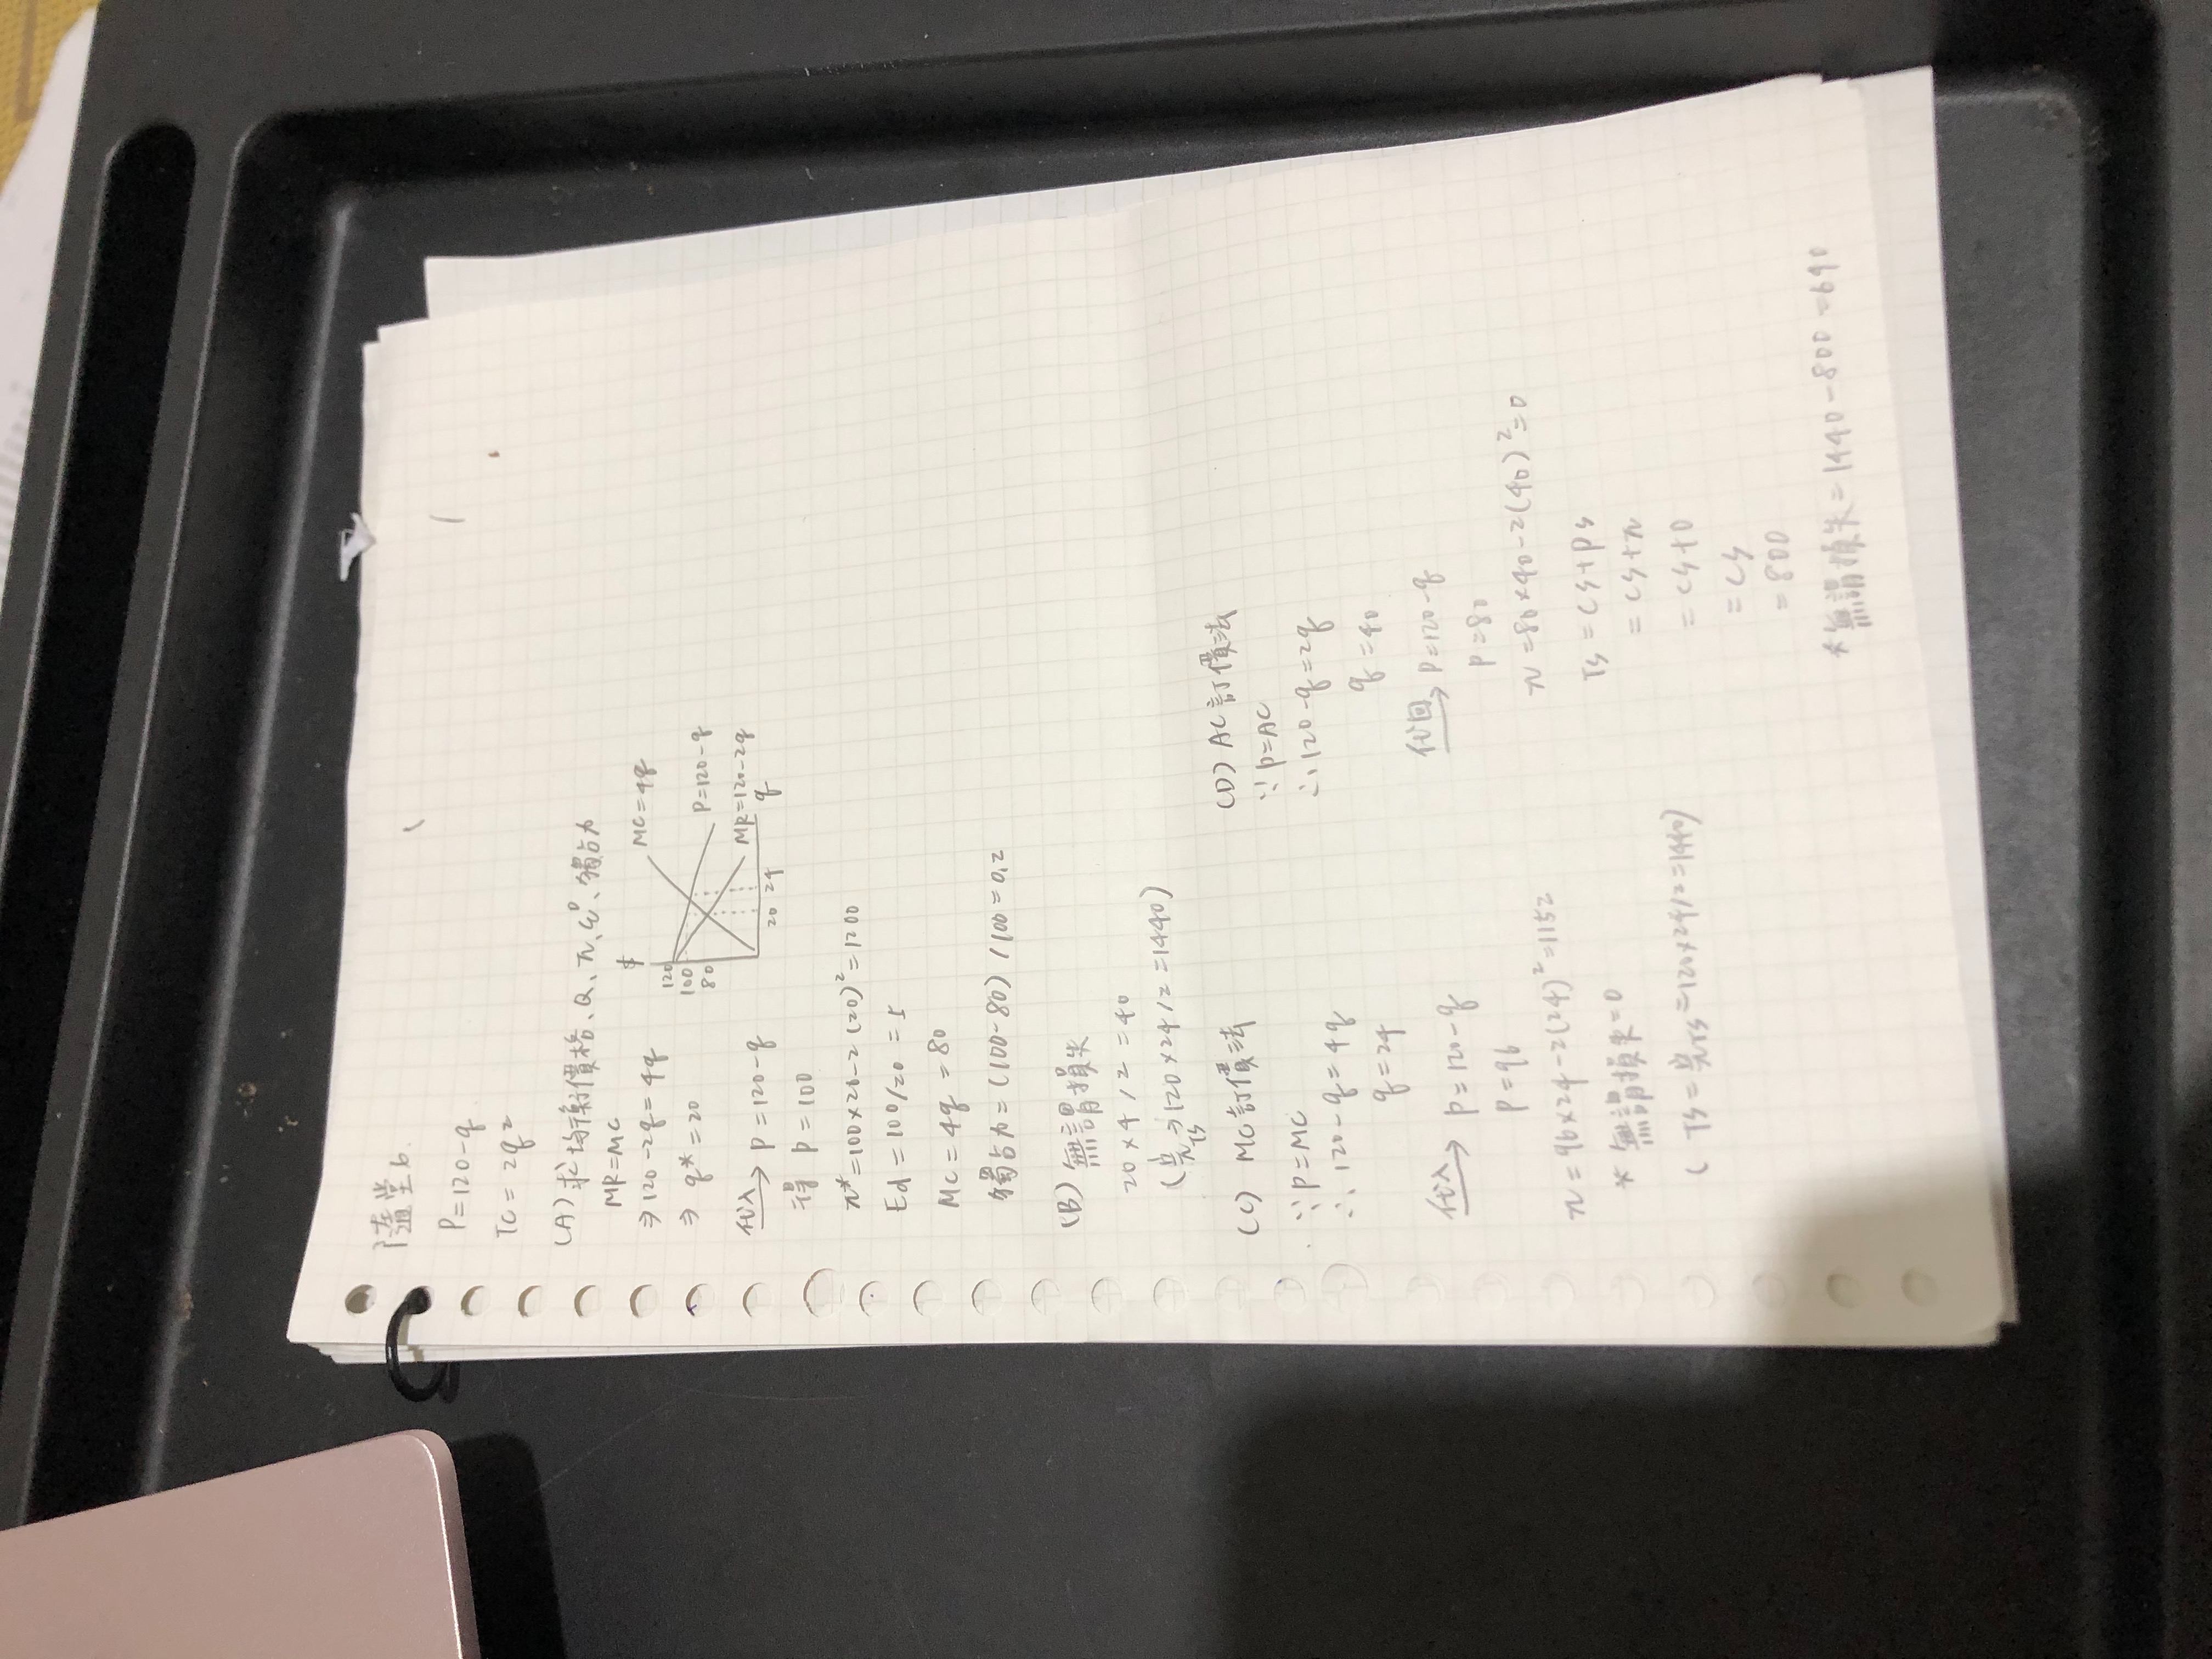 隨堂6.
P=120-q
TC=2q²
(A) 求均衡價格、Q、π、εᴰ、獨占力
MR=MC
⇒120-2q=4q
⇒ q*=20
代入→ P=120-q
得 P=100
π*=100×20-2(20)²=1200
Ed=100/20=5
MC=4q=80
獨占力=(100-80)/100=0.2
$
120
100
80
MC=4q
P=120-q
MR=120-2q
20 24 q
(B) 無謂損失
20×4/2=40
(完TS⇒120×24/2=1440)
(C) MC訂價法
∵P=MC
∴120-q=4q
q=24
代入→ P=120-q
P=96
π=96×24-2(24)²=1152
*無謂損失=0
(TS=完TS=120×24/2=1440)
(D) AC訂價法
∵P=AC
∴120-q=2q
q=40
代回→ P=120-q
P=80
π=80×40-2(40)²=0
TS=CS+PS
=CS+π
=CS+0
=CS
=800
*無謂損失=1440-800=640